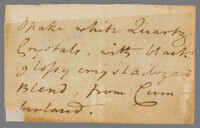 Opake white Quartz
Crystals, with black
glossy crystallized
Blend, from Cum
berland.